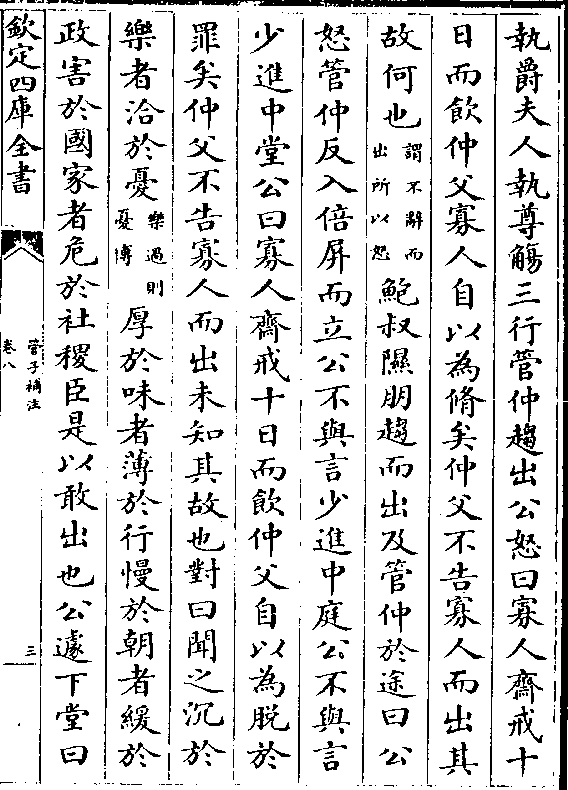 執爵夫人執尊觴三行管仲趨出公怒曰寡人齋戒十
日而飲仲父寡人自以為脩矣仲父不告寡人而出其
故何也謂不辭而出所以怒鮑叔隰朋趨而出及管仲於途曰公
怒管仲反入倍屏而立公不與言少進中庭公不與言
少進中堂公曰寡人齋戒十日而飲仲父自以為脱於
罪矣仲父不告寡人而出未知其故也對曰聞之沉於
樂者洽於憂樂過則憂博厚於味者薄於行慢於朝者緩於
政害於國家者危於社稷臣是以敢出也公遽下堂曰
欽定四庫全書
管子補注
卷八
三